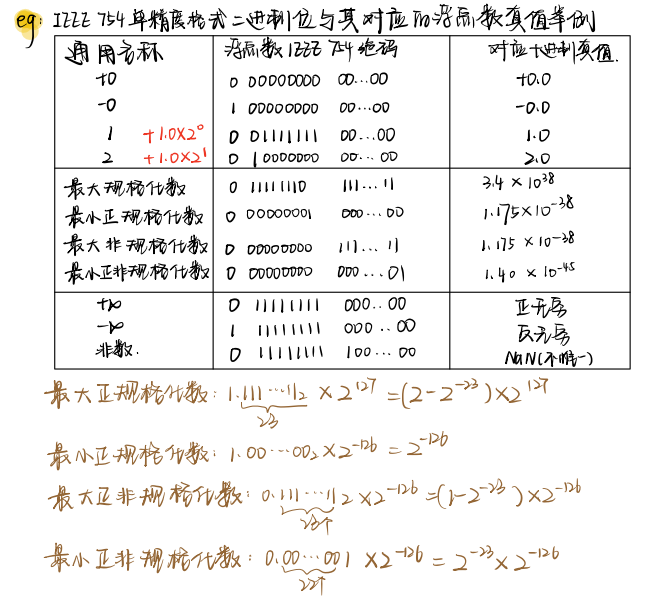 eg: IEEE 754单精度格式二进制位与其对应的浮点数真值举例
通用名称 浮点数IEEE 754编码 对应十进制真值.
+0 0 00000000 00...00 +0.0
-0 1 00000000 00...00 -0.0
1 +1.0×2⁰ 0 01111111 00...00 1.0
2 +1.0×2¹ 0 10000000 00...00 2.0
最大规格化数 0 11111110 111...11 3.4×10³⁸
最小正规格化数 0 00000001 000...00 1.175×10⁻³⁸
最大非规格化数 0 00000000 111...11 1.175×10⁻³⁸
最小正非规格化数 0 00000000 000...01 1.40×10⁻⁴⁵
+∞ 0 11111111 000..00 正无穷
-∞ 1 11111111 000..00 负无穷
非数. 0 11111111 100...00 NaN(不唯一)
最大正规格化数: 1.111...11₂ ×2¹²⁷ =(2-2⁻²³)×2¹²⁷
23
最小正规格化数: 1.00...00₂×2⁻¹²⁶ = 2⁻¹²⁶
最大正非规格化数: 0.111...11₂×2⁻¹²⁶=(1-2⁻²³)×2⁻¹²⁶
23个
最小正非规格化数: 0.00...001 ×2⁻¹²⁶ = 2⁻²³×2⁻¹²⁶
22个